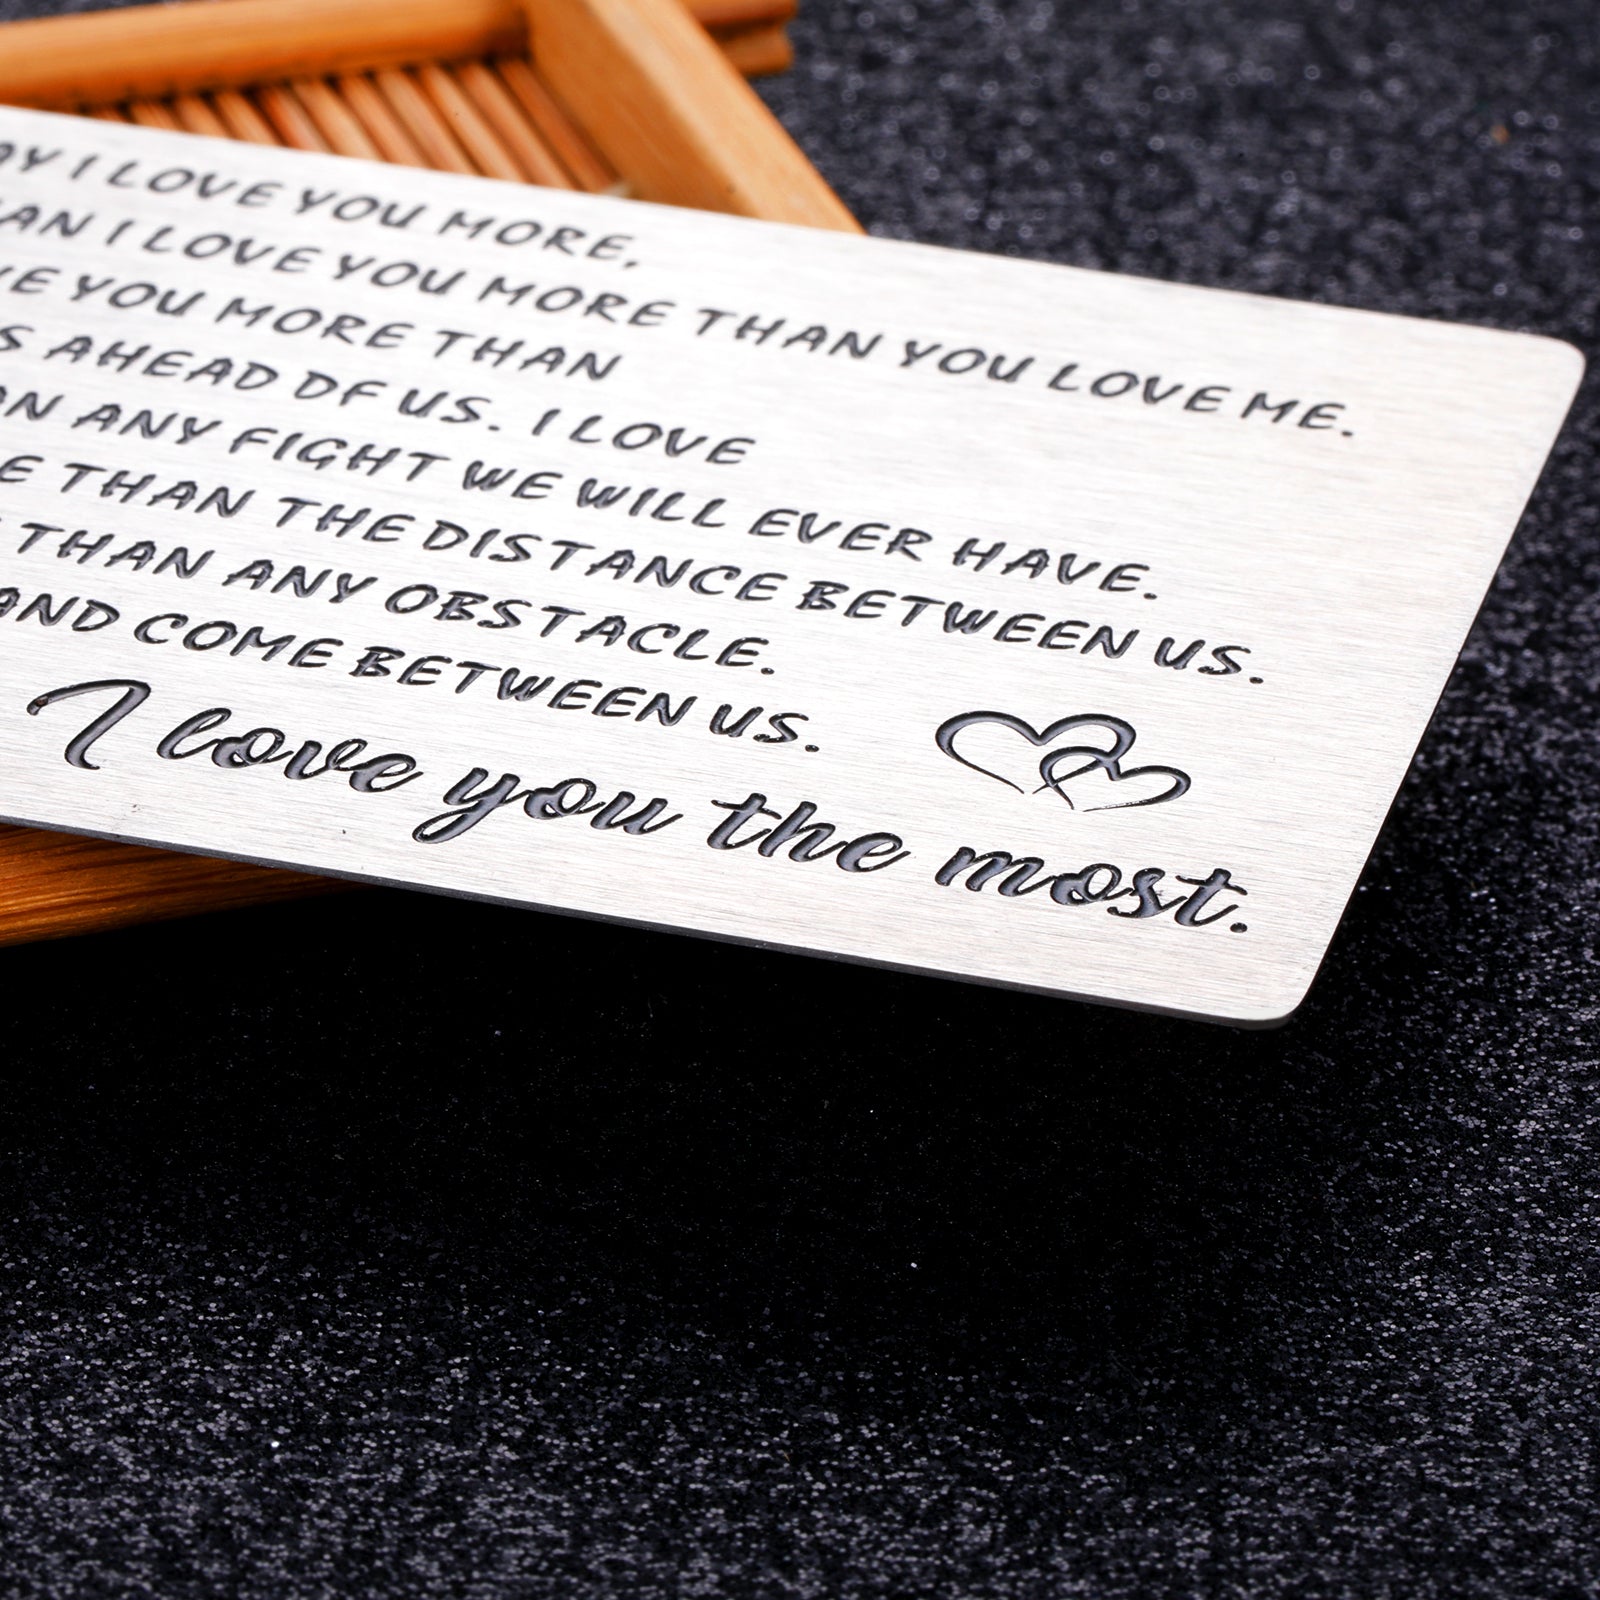 I LOVE YOU MORE,
I LOVE YOU MORE THAN YOU LOVE ME.
YOU MORE THAN
AHEAD DF US. I LOVE
ANY FIGHT WE WILL EVER HAVE.
THAN THE DISTANCE BETWEEN US.
THAN ANY OBSTACLE.
AND COME BETWEEN US.
I love you the most.